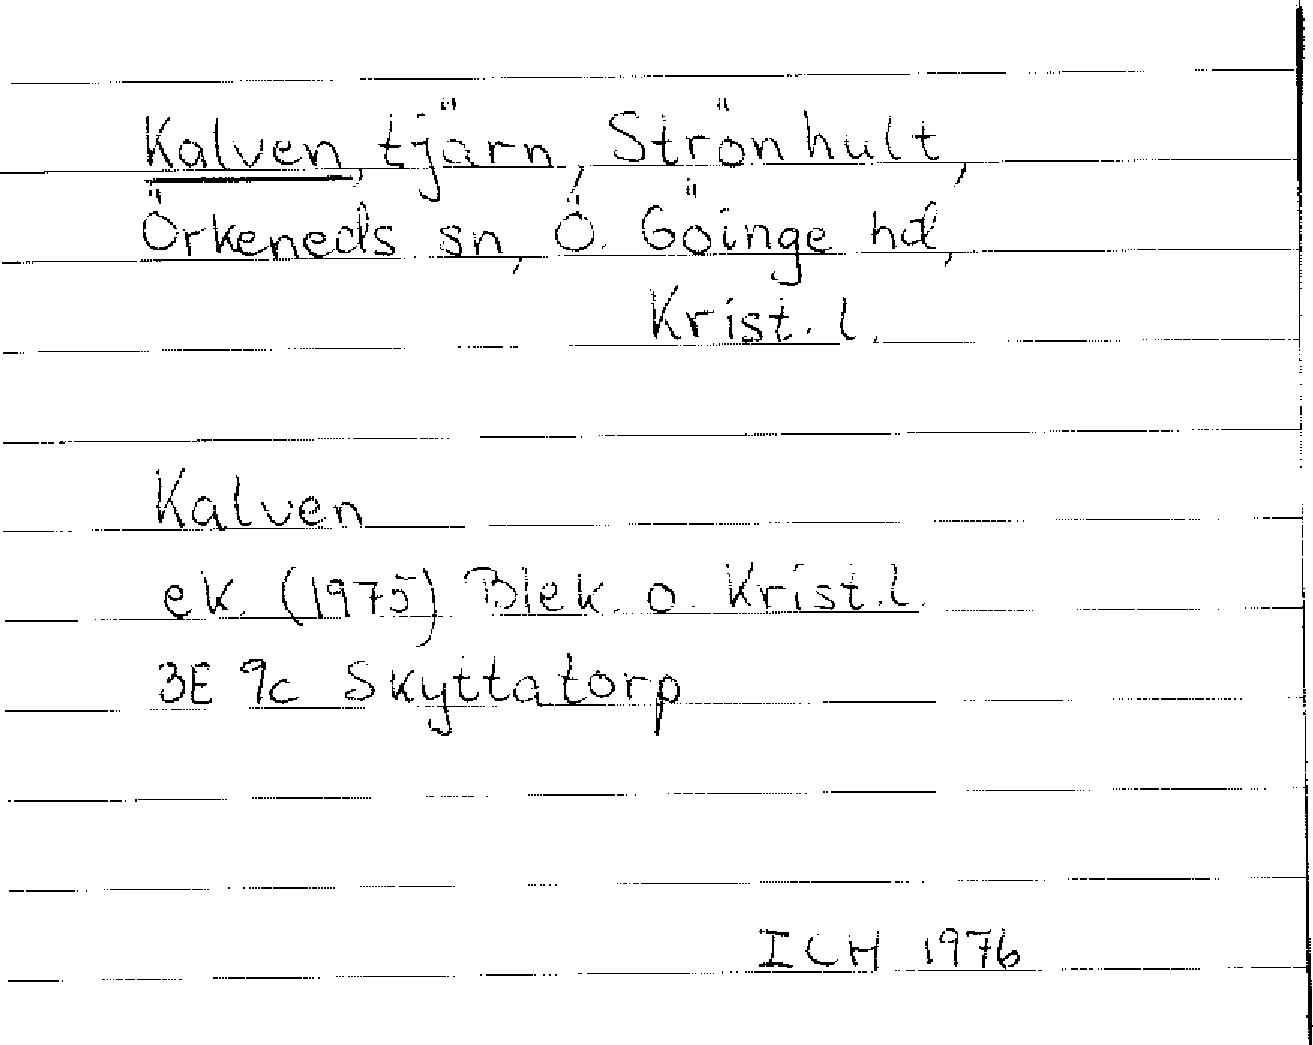 Kalven, tjärn, Strönhult,
Örkeneds sn, Ö. Göinge hd,
Krist. l.
Kalven
ek. (1975) Blek. o. Krist. l.
3E 9c Skyttatorp
ICH 1976